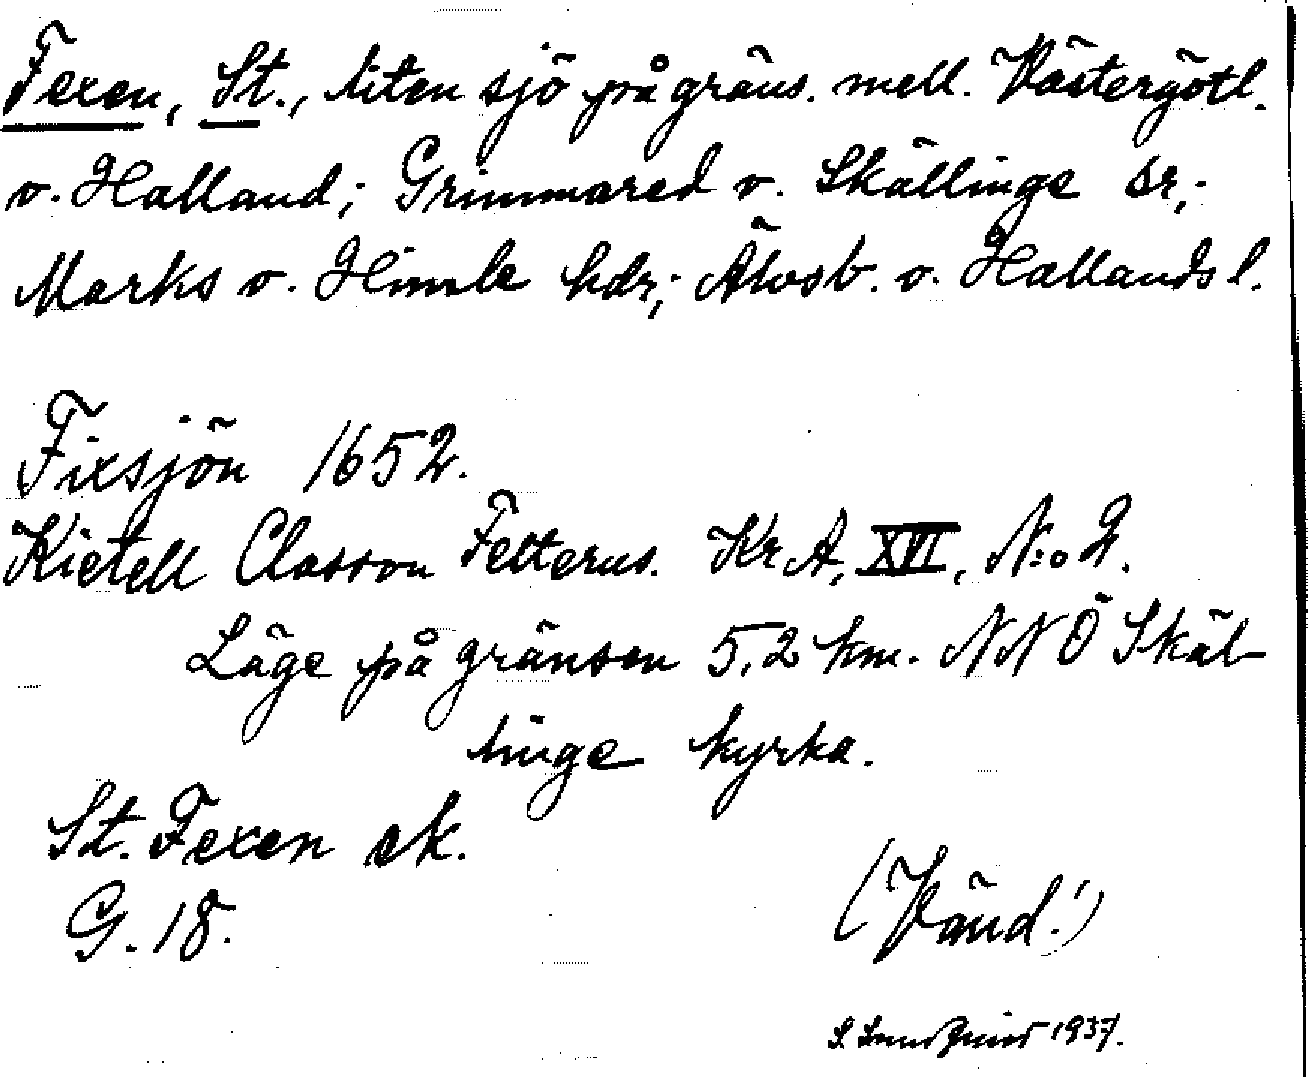 Fexen, St., liten sjö på gräns. mell. Västergötl.
o. Halland; Grimmared o. Skällinge sr;
Marks o. Himle hdr; Älvsb. o. Hallands l.
Fixsjön 1652.
Kietell Classon Felterus. Kr A, XVI, N:o 2.
Läge på gränsen 5,2 km. NNÖ Skäl-
linge kyrka.
St. Fexen ek.
G. 18.
(Vänd!)
S. 1937.